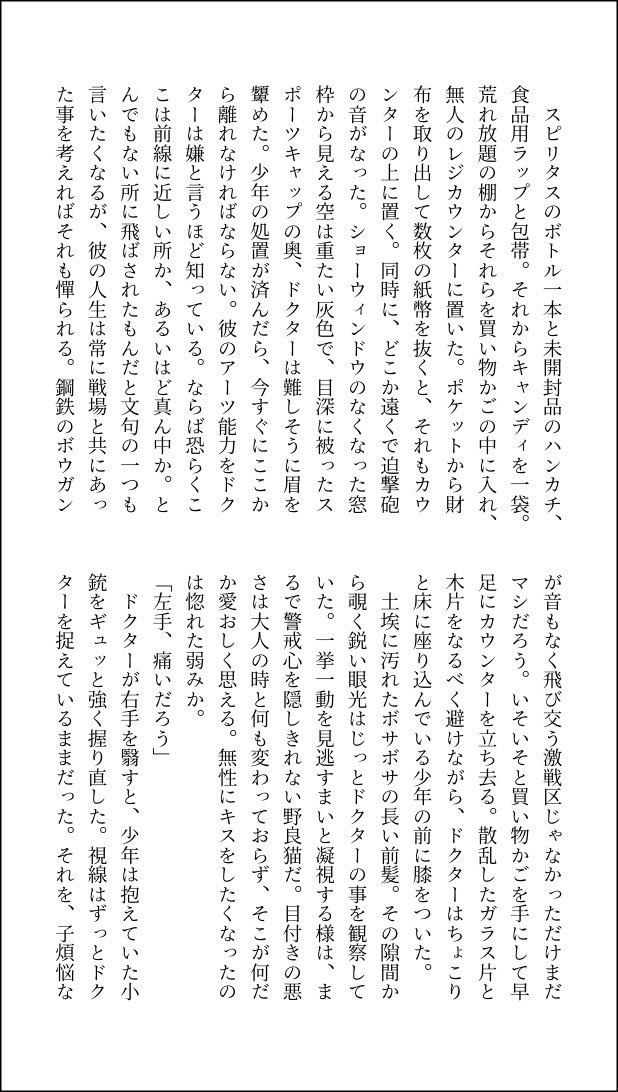 スピリタスのボトル一本と未開封品のハンカチ、
食品用ラップと包帯。それからキャンディを一袋。
荒れ放題の棚からそれらを買い物かごの中に入れ、
無人のレジカウンターに置いた。ポケットから財
布を取り出して数枚の紙幣を抜くと、それもカウ
ンターの上に置く。同時に、どこか遠くで迫撃砲
の音がなった。ショーウィンドウのなくなった窓
枠から見える空は重たい灰色で、目深に被ったス
ポーツキャップの奥、ドクターは難しそうに眉を
顰めた。少年の処置が済んだら、今すぐにここか
ら離れなければならない。彼のアーツ能力をドク
ターは嫌と言うほど知っている。ならば恐らくこ
こは前線に近しい所か、あるいはど真ん中か。と
んでもない所に飛ばされたもんだと文句の一つも
言いたくなるが、彼の人生は常に戦場と共にあっ
た事を考えればそれも憚られる。鋼鉄のボウガン
が音もなく飛び交う激戦区じゃなかっただけまだ
マシだろう。いそいそと買い物かごを手にして早
足にカウンターを立ち去る。散乱したガラス片と
木片をなるべく避けながら、ドクターはちょこり
と床に座り込んでいる少年の前に膝をついた。
　土埃に汚れたボサボサの長い前髪。その隙間か
ら覗く鋭い眼光はじっとドクターの事を観察して
いた。一挙一動を見逃すまいと凝視する様は、ま
るで警戒心を隠しきれない野良猫だ。目付きの悪
さは大人の時と何も変わっておらず、そこが何だ
か愛おしく思える。無性にキスをしたくなったの
は惚れた弱みか。
「左手、痛いだろう」
　ドクターが右手を翳すと、少年は抱えていた小
銃をギュッと強く握り直した。視線はずっとドク
ターを捉えているままだった。それを、子煩悩な